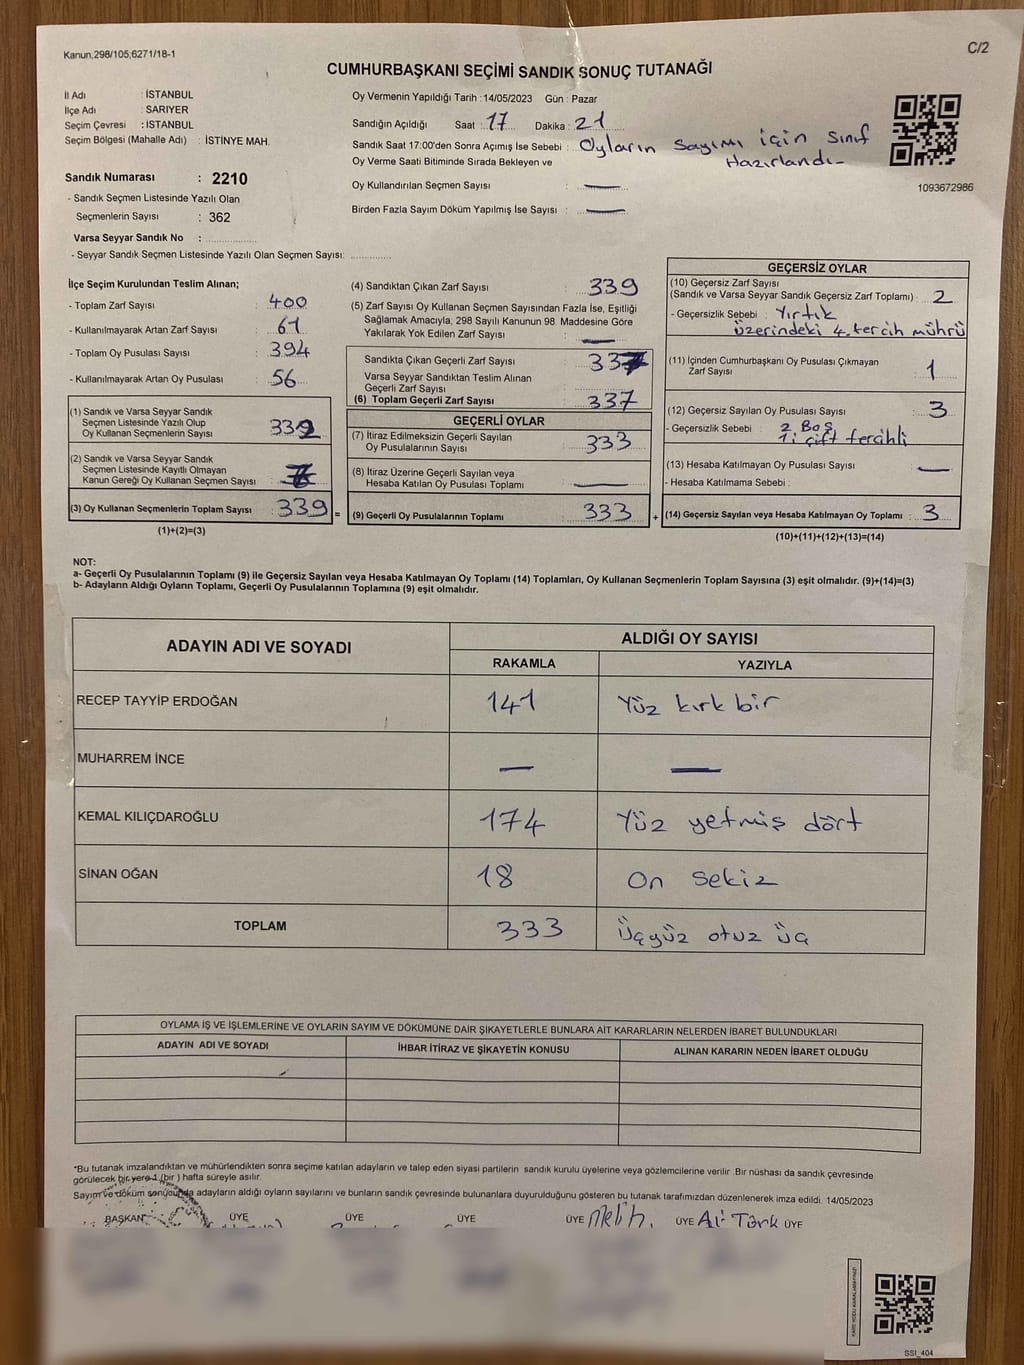 Kanun,298/105,6271/18-1
C/2
CUMHURBAŞKANI SEÇİMİ SANDIK SONUÇ TUTANAĞI
İl Adı : İSTANBUL
İlçe Adı : SARIYER
Seçim Çevresi : İSTANBUL
Seçim Bölgesi (Mahalle Adı) : İSTİNYE MAH.
Sandık Numarası : 2210
- Sandık Seçmen Listesinde Yazılı Olan
Seçmenlerin Sayısı : 362
Varsa Seyyar Sandık No :
- Seyyar Sandık Seçmen Listesinde Yazılı Olan Seçmen Sayısı:
Oy Vermenin Yapıldığı Tarih : 14/05/2023 Gün : Pazar
Sandığın Açıldığı Saat : 17 Dakika : 21
Sandık Saat 17:00'den Sonra Açımış İse Sebebi : Oyların sayımı için sınıf
Hazırlandı-
Oy Verme Saati Bitiminde Sırada Bekleyen ve
Oy Kullandırılan Seçmen Sayısı : —
Birden Fazla Sayım Döküm Yapılmış İse Sayısı : —
1093672986
İlçe Seçim Kurulundan Teslim Alınan;
- Toplam Zarf Sayısı : 400
- Kullanılmayarak Artan Zarf Sayısı : 61
- Toplam Oy Pusulası Sayısı : 394
- Kullanılmayarak Artan Oy Pusulası : 56
(1) Sandık ve Varsa Seyyar Sandık
Seçmen Listesinde Yazılı Olup
Oy Kullanan Seçmenlerin Sayısı : 339
(2) Sandık ve Varsa Seyyar Sandık
Seçmen Listesinde Kayıtlı Olmayan
Kanun Gereği Oy Kullanan Seçmen Sayısı :
(3) Oy Kullanan Seçmenlerin Toplam Sayısı : 339
(1)+(2)=(3)
=
(4) Sandıktan Çıkan Zarf Sayısı : 339
(5) Zarf Sayısı Oy Kullanan Seçmen Sayısından Fazla İse, Eşitliği
Sağlamak Amacıyla, 298 Sayılı Kanunun 98. Maddesine Göre
Yakılarak Yok Edilen Zarf Sayısı : —
Sandıkta Çıkan Geçerli Zarf Sayısı : 337
Varsa Seyyar Sandıktan Teslim Alınan
Geçerli Zarf Sayısı :
(6) Toplam Geçerli Zarf Sayısı : 337
GEÇERLİ OYLAR
(7) İtiraz Edilmeksizin Geçerli Sayılan
Oy Pusulalarının Sayısı : 333
(8) İtiraz Üzerine Geçerli Sayılan veya
Hesaba Katılan Oy Pusulası Toplamı : —
(9) Geçerli Oy Pusulalarının Toplamı : 333
+
GEÇERSİZ OYLAR
(10) Geçersiz Zarf Sayısı
(Sandık ve Varsa Seyyar Sandık Geçersiz Zarf Toplamı) : 2
- Geçersizlik Sebebi : Yırtık
üzerindeki 4. tercih mührü
(11) İçinden Cumhurbaşkanı Oy Pusulası Çıkmayan
Zarf Sayısı : 1
(12) Geçersiz Sayılan Oy Pusulası Sayısı : 3
- Geçersizlik Sebebi : 2 Boş
1i çift tercihli
(13) Hesaba Katılmayan Oy Pusulası Sayısı : —
- Hesaba Katılmama Sebebi :
(14) Geçersiz Sayılan veya Hesaba Katılmayan Oy Toplamı : 3
(10)+(11)+(12)+(13)=(14)
NOT:
a- Geçerli Oy Pusulalarının Toplamı (9) ile Geçersiz Sayılan veya Hesaba Katılmayan Oy Toplamı (14) Toplamları, Oy Kullanan Seçmenlerin Toplam Sayısına (3) eşit olmalıdır. (9)+(14)=(3)
b- Adayların Aldığı Oyların Toplamı, Geçerli Oy Pusulalarının Toplamına (9) eşit olmalıdır.
ADAYIN ADI VE SOYADI ALDIĞI OY SAYISI
RAKAMLA YAZIYLA
RECEP TAYYİP ERDOĞAN 141 Yüz kırk bir
MUHARREM İNCE — —
KEMAL KILIÇDAROĞLU 174 Yüz yetmiş dört
SİNAN OĞAN 18 On sekiz
TOPLAM 333 üçyüz otuz üç
OYLAMA İŞ VE İŞLEMLERİNE VE OYLARIN SAYIM VE DÖKÜMÜNE DAİR ŞİKAYETLERLE BUNLARA AİT KARARLARIN NELERDEN İBARET BULUNDUKLARI
ADAYIN ADI VE SOYADI İHBAR İTİRAZ VE ŞİKAYETİN KONUSU ALINAN KARARIN NEDEN İBARET OLDUĞU
*Bu tutanak imzalandıktan ve mühürlendikten sonra seçime katılan adayların ve talep eden siyasi partilerin sandık kurulu üyelerine veya gözlemcilerine verilir .Bir nüshası da sandık çevresinde
görülecek bir yere 1 (bir ) hafta süreyle asılır.
Sayım ve döküm sonucunda adayların aldığı oyların sayılarını ve bunların sandık çevresinde bulunanlara duyurulduğunu gösteren bu tutanak tarafımızdan düzenlenerek imza edildi. 14/05/2023
BAŞKAN ÜYE ÜYE ÜYE ÜYE Melih. ÜYE Ali Türk ÜYE
SSI_404